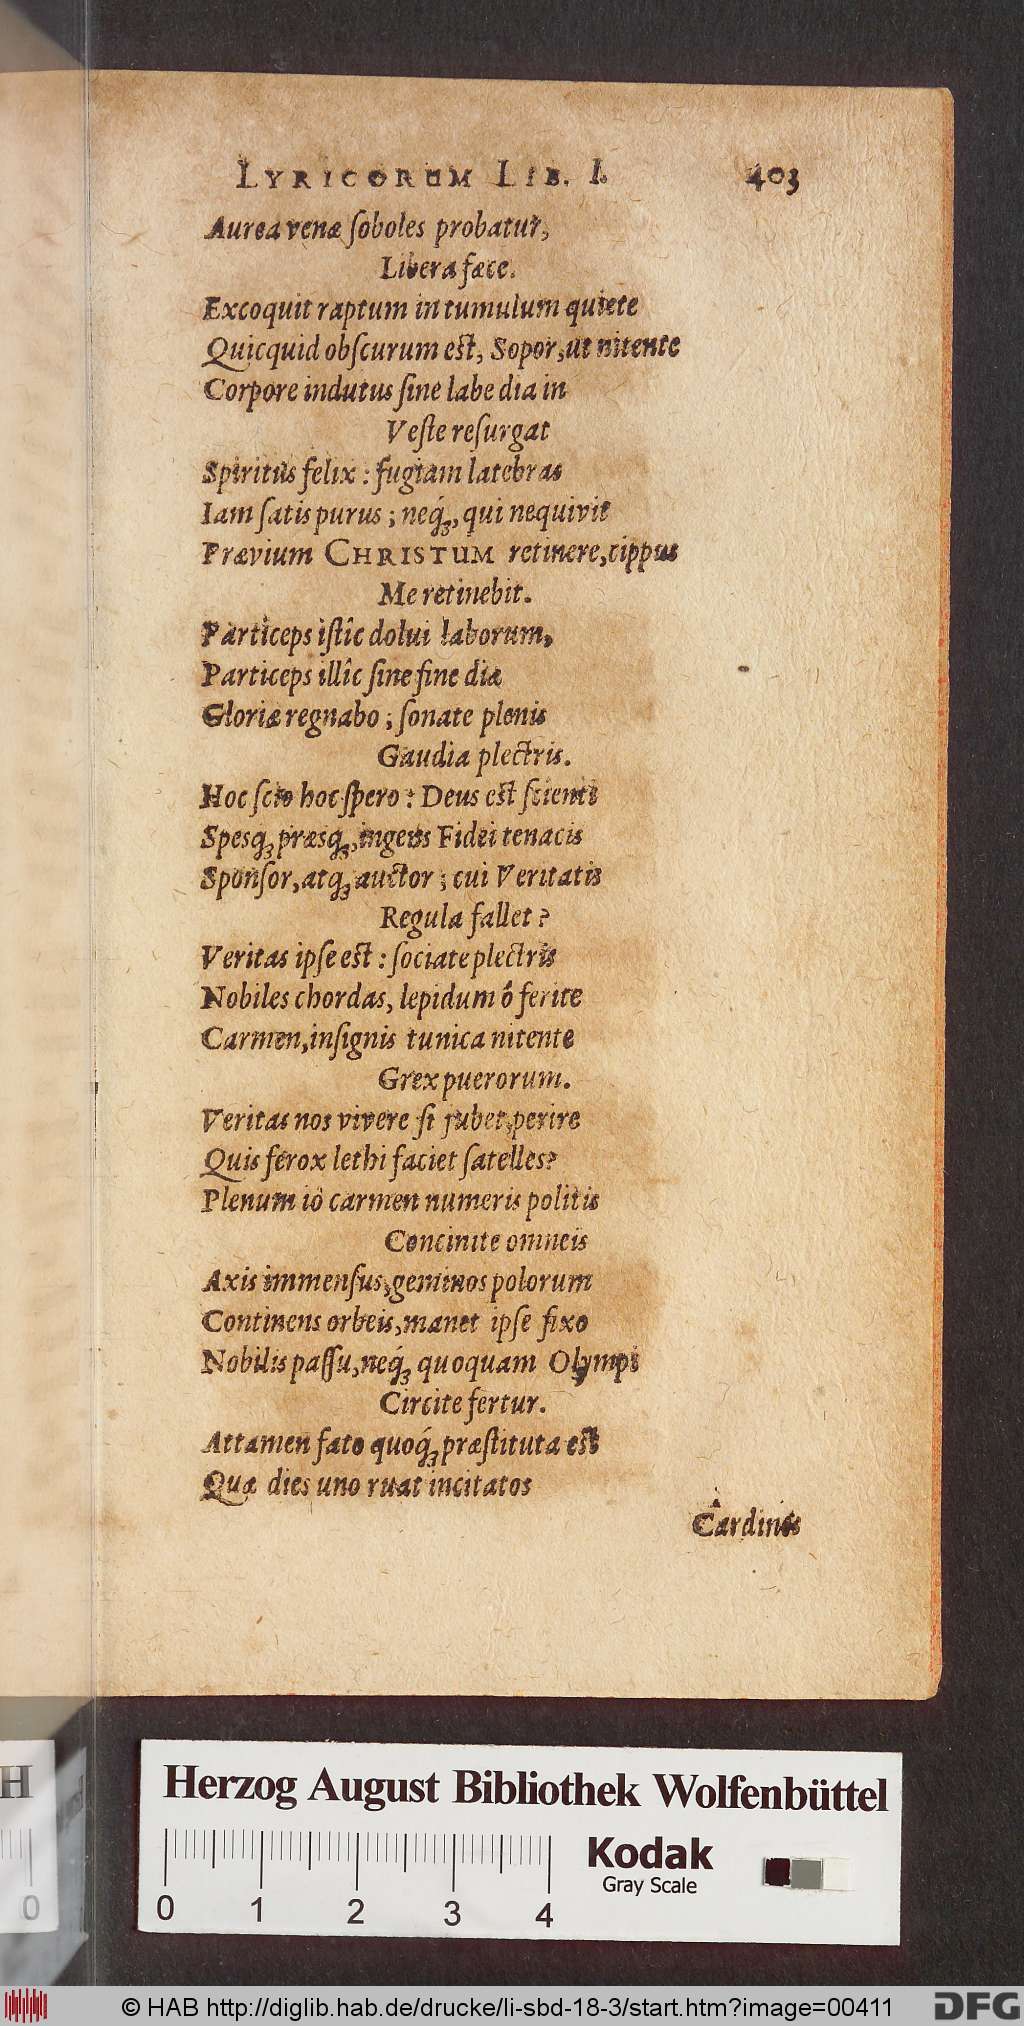 LYRICORUM LIB. I. 403
Aurea venæ ſoboles probatur,
Libera fæce.
Excoquit raptum in tumulum quiete
Quicquid obſcurum est, Sopor, ut nitente
Corpore indutus ſine labe dia in
Veſte reſurgat
Spiritus felix : fugiam latebras
Iam ſatis purus ; neq́ꝫ, qui nequivit
Prævium CHRISTUM retinere, cippus
Me retinebit.
Particeps iſtîc dolui laborum,
Particeps illîc ſine fine diæ
Gloriæ regnabo ; ſonate plenis
Gaudia plectris.
Hoc ſcio hoc ſpero : Deus est ſcienti
Spesqꝫ præsqꝫ, ingens Fidei tenacis
Sponſor, atqꝫ auctor ; cui Veritatis
Regula fallet ?
Veritas ipſe est : ſociate plectris
Nobiles chordas, lepidum ô ferite
Carmen, inſignis tunica nitente
Grex puerorum.
Veritas nos vivere ſi jubet, perire
Quis ferox lethi faciet ſatelles?
Plenum iò carmen numeris politis
Concinite omneis
Axis immenſus, geminos polorum
Continens orbeis, manet ipſe fixo
Nobilis paſſu, neq́ꝫ quoquam Olympi
Circite fertur.
Attamen fato quoq́ꝫ præſtituta est
Quæ dies uno ruat incitatos
Cardinis
Herzog August Bibliothek Wolfenbüttel
Kodak
Gray Scale
0 1 2 3 4
H
0
© HAB http://diglib.hab.de/drucke/li-sbd-18-3/start.htm?image=00411
DFG